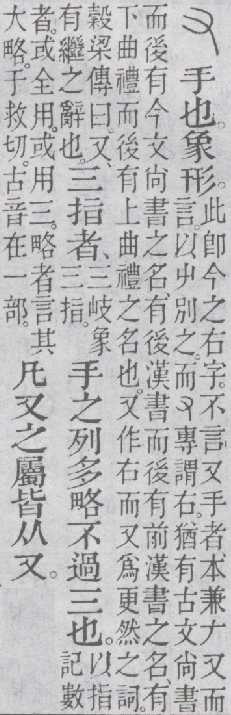 又手也。象形。此卽今之右字。不言又手者、本兼𠂇又而
言。以屮別之。而又專謂右。猶有古文尙書
而後有今文尙書之名。有後漢書而後有前漢書之名。有
下曲禮而後有上曲禮之名也。又作右而又爲更然之詞。
穀梁傳曰。又、
有繼之辭也。
三指者、
三岐象
三指。
手之列多略不過三也。
以指
記數
者。或全用。或用三。略者言其
大略。于救切。古音在一部。
凡又之屬皆从又。